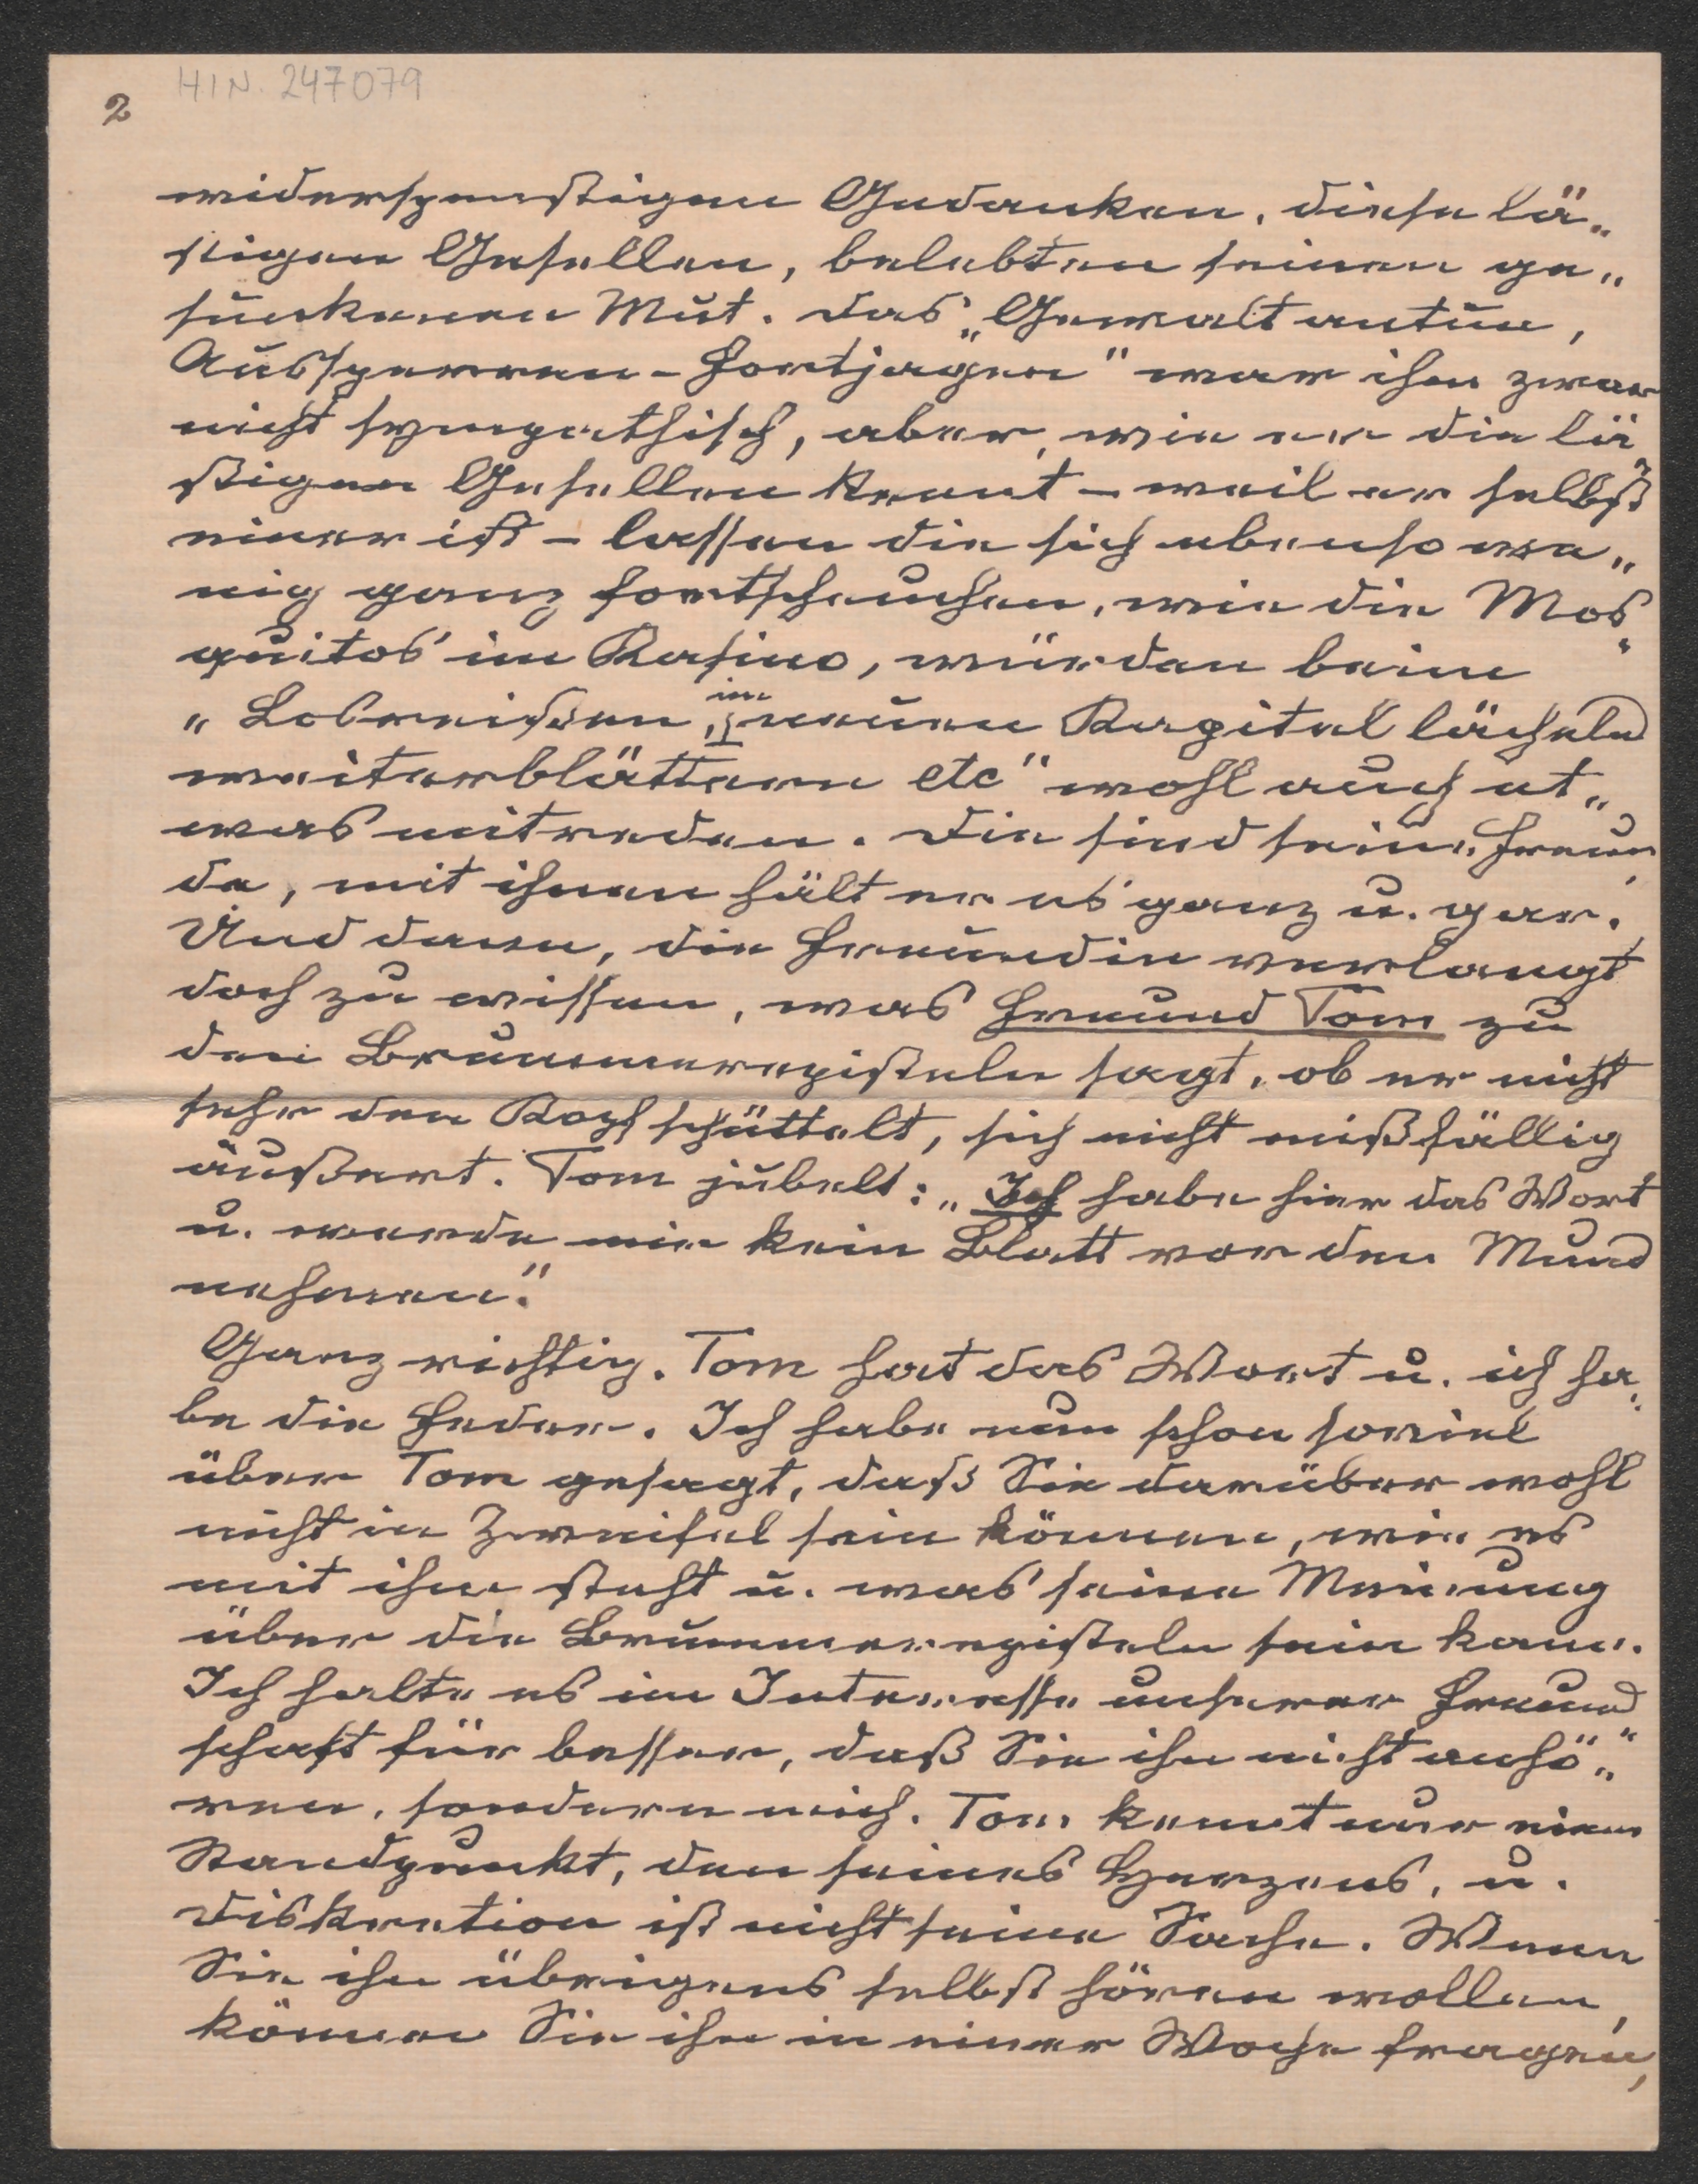 HIN. 247079
2
widerspenstigen Gedanken, diese lä„
stigen Gesellen, belebten seinen ge„
sunkenen Mut. Das „Gewalt antun,
Aussperren - Fortjagen" war ihm zwar
nicht sympathisch, aber, wie er die lä„
stigen Gesellen kennt – weil er selbst
einer ist – lassen die sich ebenso we„
nig ganz fortscheuchen, wie die Mos„
quitos im Kasino, würden beim
„Losreißen, im neuen Kapitel lächelnd
weiterblättern etc" wohl auch et„
was mitreden. Die sind seine Freun„
de, mit ihnen hält er es ganz u. gar.
Und dann, die Freundin verlangt
doch zu wissen, was Freund Tom zu
den Brummerepisteln sagt, ob er nicht
sehr den Kopf schüttelt, sich nicht mißfällig
äußert. Tom jubelt: „Ich habe hier das Wort
u. werde mir kein Blatt vor den Mund
nehmen."
Ganz richtig. Tom hat das Wort u. ich ha„
be die Feder. Ich habe nun schon soviel
über Tom gesagt, daß Sie darüber wohl
nicht in Zweifel sein können, wie es
mit ihm steht u. was seine Meinung
über die Brummerepisteln sein kann.
Ich halte es im Interesse unserer Freund„
schaft für besser, daß Sie ihn nicht anhö„
ren, sondern mich. Tom kennt nur einen
Standpunkt, den seines Herzens, u.
Diskretion ist nicht seine Sache. Wenn
Sie ihn übrigens selbst hören wollen,
können Sie ihn in einer Woche fragen,